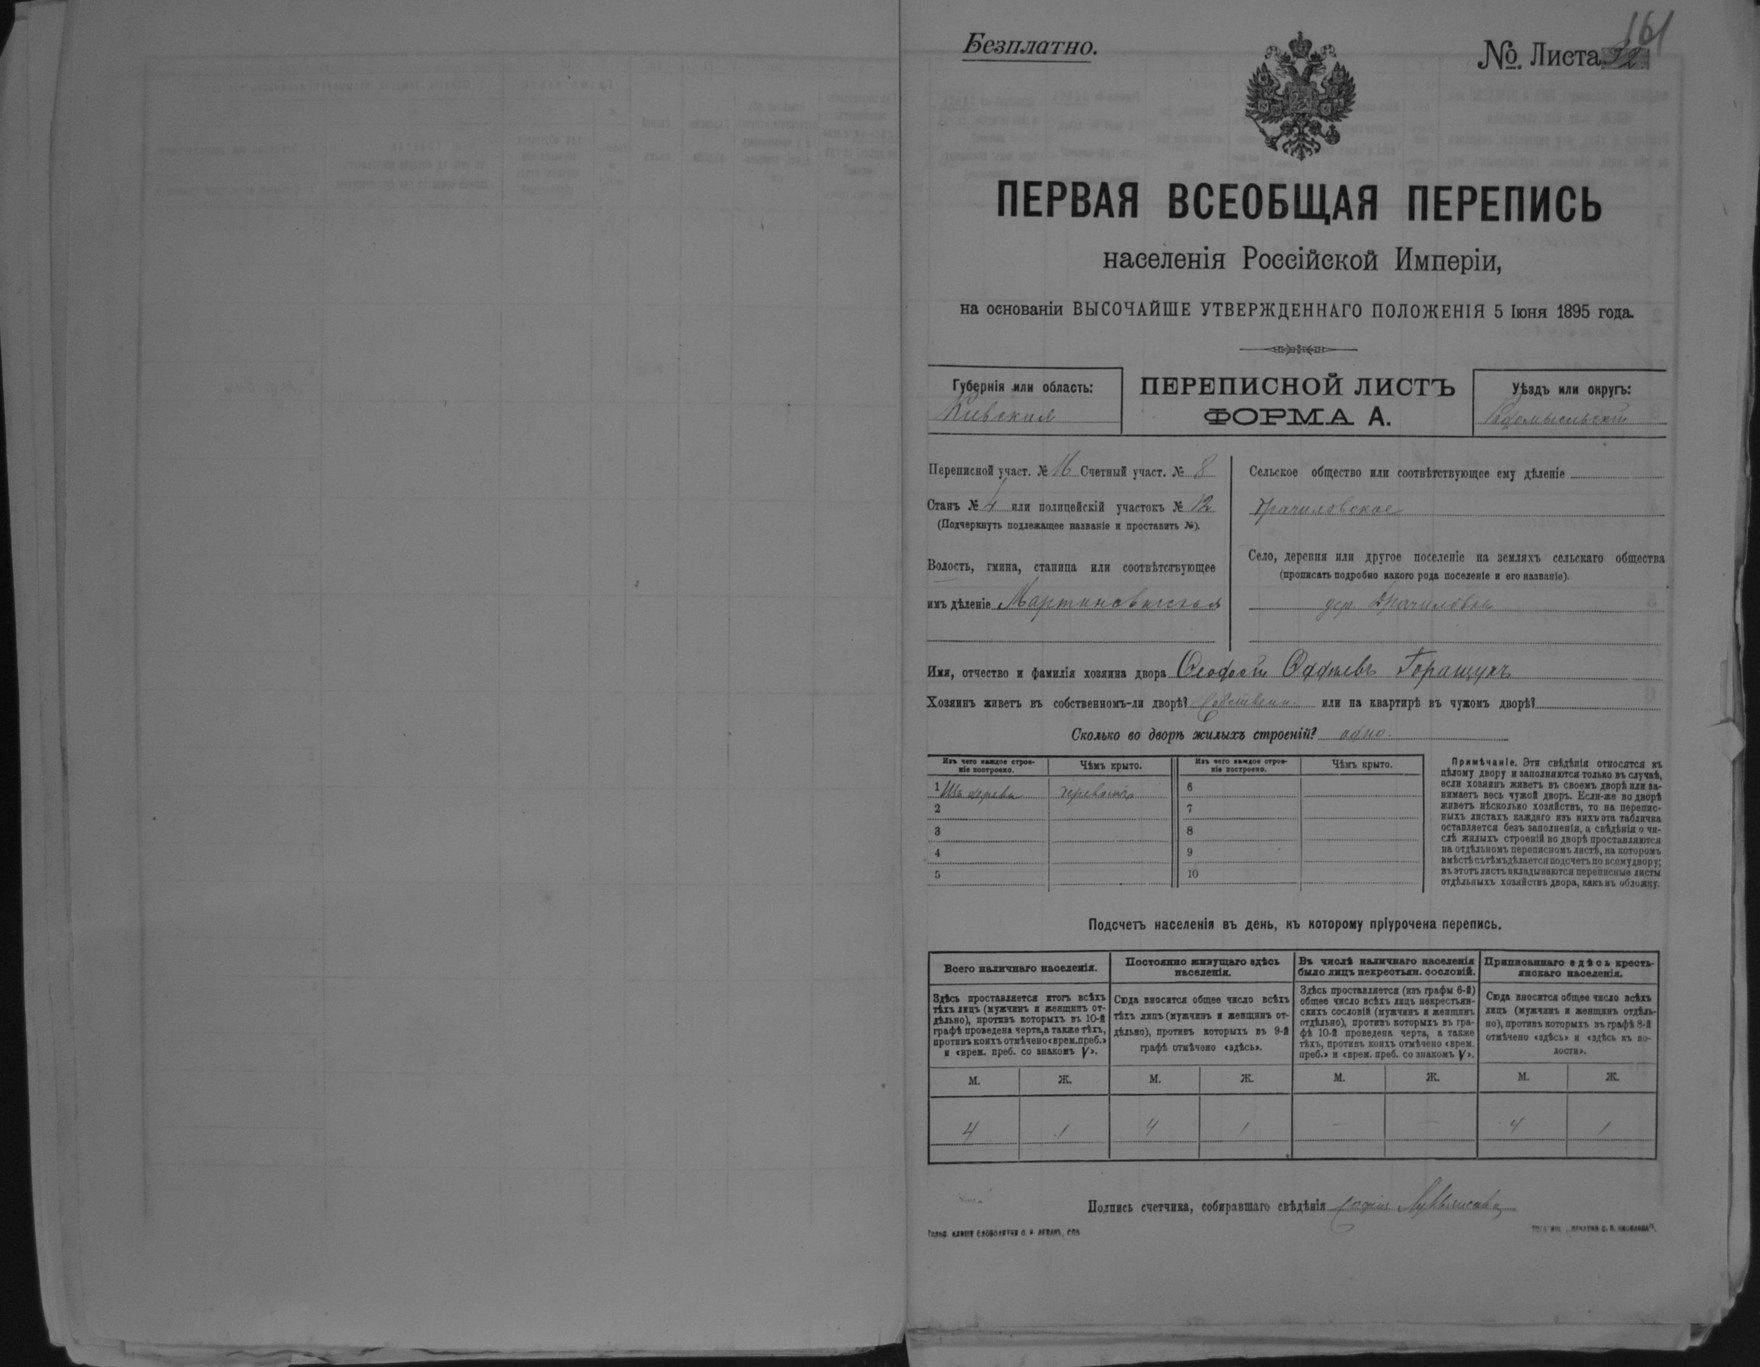 161
Безплатно.
№. Листа
ПЕРВАЯ ВСЕОБЩАЯ ПЕРЕПИСЬ
населенія Россійской Имперіи,
на основаніи ВЫСОЧАЙШЕ УТВЕРЖДЕННАГО ПОЛОЖЕНІЯ 5 Іюня 1895 года.
Губернія или область:
Кіевская
ПЕРЕПИСНОЙ ЛИСТЪ
ФОРМА А.
Уѣздъ или округъ:
Радомысльскій
Переписной участ. № 16 Счетный участ. № 8
Станъ № 4 или полицейскій участокъ № 12
(Подчеркнуть подлежащее названіе и проставить №).
Волость, гмина, станица или соотвѣтствующее
имъ дѣленіе Мартиновичская
Сельское общество или соотвѣтствующее ему дѣленіе
Село, деревня или другое поселеніе на земляхъ сельскаго общества
(прописать подробно какого рода поселеніе и его названіе).
дер.
Имя, отчество и фамилія хозяина двора Горащукъ
Хозяинъ живетъ въ собственномъ-ли дворѣ? Собствен. или на квартирѣ въ чужомъ дворѣ?
Сколько во дворѣ жилыхъ строеній? одно.
Изъ чего каждое строеніе построено.
Чѣмъ крыто.
Изъ чего каждое строеніе построено.
Чѣмъ крыто.
1 Изъ дерева
6
2
7
3
8
4
9
5
10
Примѣчаніе. Эти свѣдѣнія относятся къ
цѣлому двору и заполняются только въ случаѣ,
если хозяинъ живетъ въ своемъ дворѣ или за-
нимаетъ весь чужой дворъ. Если-же во дворѣ
живетъ нѣсколько хозяйствъ, то на перепис-
ныхъ листахъ каждаго изъ нихъ эта табличка
оставляется безъ заполненія, а свѣдѣнія о чи-
слѣ жилыхъ строеній во дворѣ проставляются
на отдѣльномъ переписномъ листѣ, на которомъ
вмѣстѣ съ тѣмъ дѣлается подсчетъ по всему двору;
въ этотъ листъ вкладываются переписные листы
отдѣльныхъ хозяйствъ двора, какъ въ обложку.
Подсчетъ населенія въ день, къ которому пріурочена перепись.
Всего наличнаго населенія.
Здѣсь проставляется итогъ всѣхъ
тѣхъ лицъ (мужчинъ и женщинъ от-
дѣльно), противъ которыхъ въ 10-й
графѣ проведена черта, а также тѣхъ,
противъ коихъ отмѣчено «врем. преб.»
и «врем. преб. со знакомъ V».
Постоянно живущаго здѣсь
населенія.
Сюда вносится общее число всѣхъ
тѣхъ лицъ (мужчинъ и женщинъ от-
дѣльно), противъ которыхъ въ 9-й
графѣ отмѣчено «здѣсь».
Въ числѣ наличнаго населенія
было лицъ некрестьян. сословій.
Здѣсь проставляется (изъ графы 6-й)
общее число всѣхъ лицъ некрестьян-
скихъ сословій (мужчинъ и женщинъ
отдѣльно), противъ которыхъ въ гра-
фѣ 10-й проведена черта, а также
тѣхъ, противъ коихъ отмѣчено «врем.
преб.» и «врем. преб. со знакомъ V».
Приписаннаго здѣсь кресть-
янскаго населенія.
Сюда вносится общее число всѣхъ
лицъ (мужчинъ и женщинъ отдѣль-
но), противъ которыхъ въ графѣ 8-й
отмѣчено «здѣсь» и «здѣсь къ во-
лости».
М. Ж. М. Ж. М. Ж. М. Ж.
4 1 4 1 — — 4 1
Подпись счетчика, собиравшаго свѣдѣнія